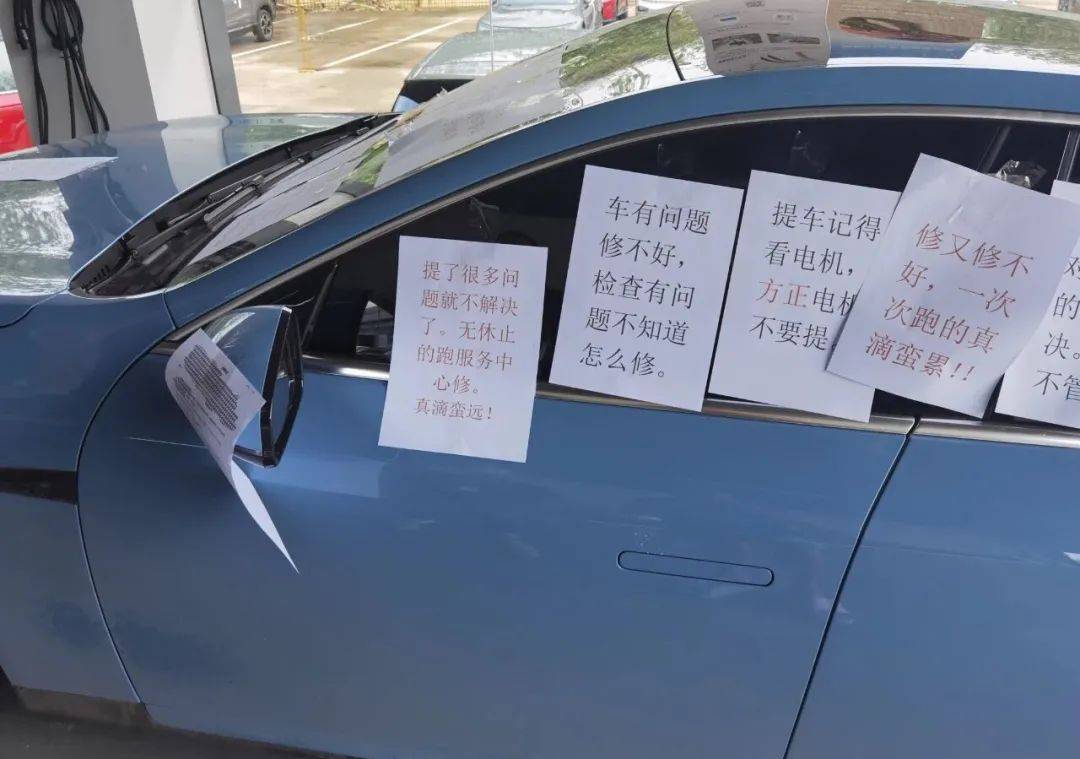 提了很多问
题就不解决
了。无休止
的跑服务中
心修。
真滴蛮远！
车有问题
修不好，
检查有问
题不知道
怎么修。
提车记得
看电机，
方正电机
不要提
修又修不
好，一次
次跑的真
滴蛮累!!
的
决。
不管